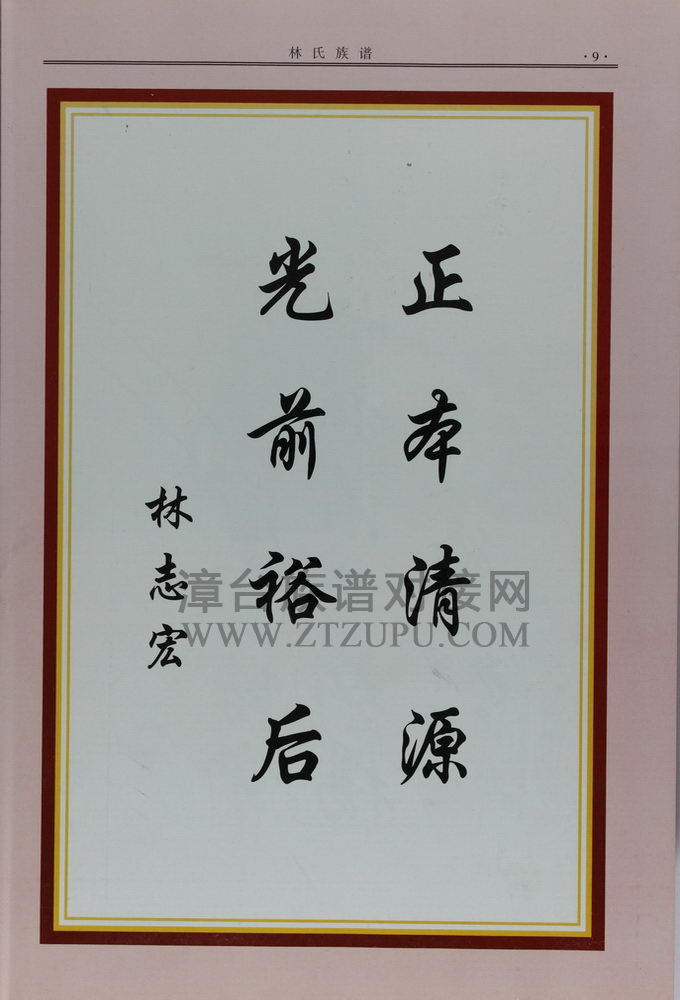 林氏族谱
·9·
正本清源
光前裕后
林志宏
漳台族谱对接网
WWW.ZTZUPU.COM